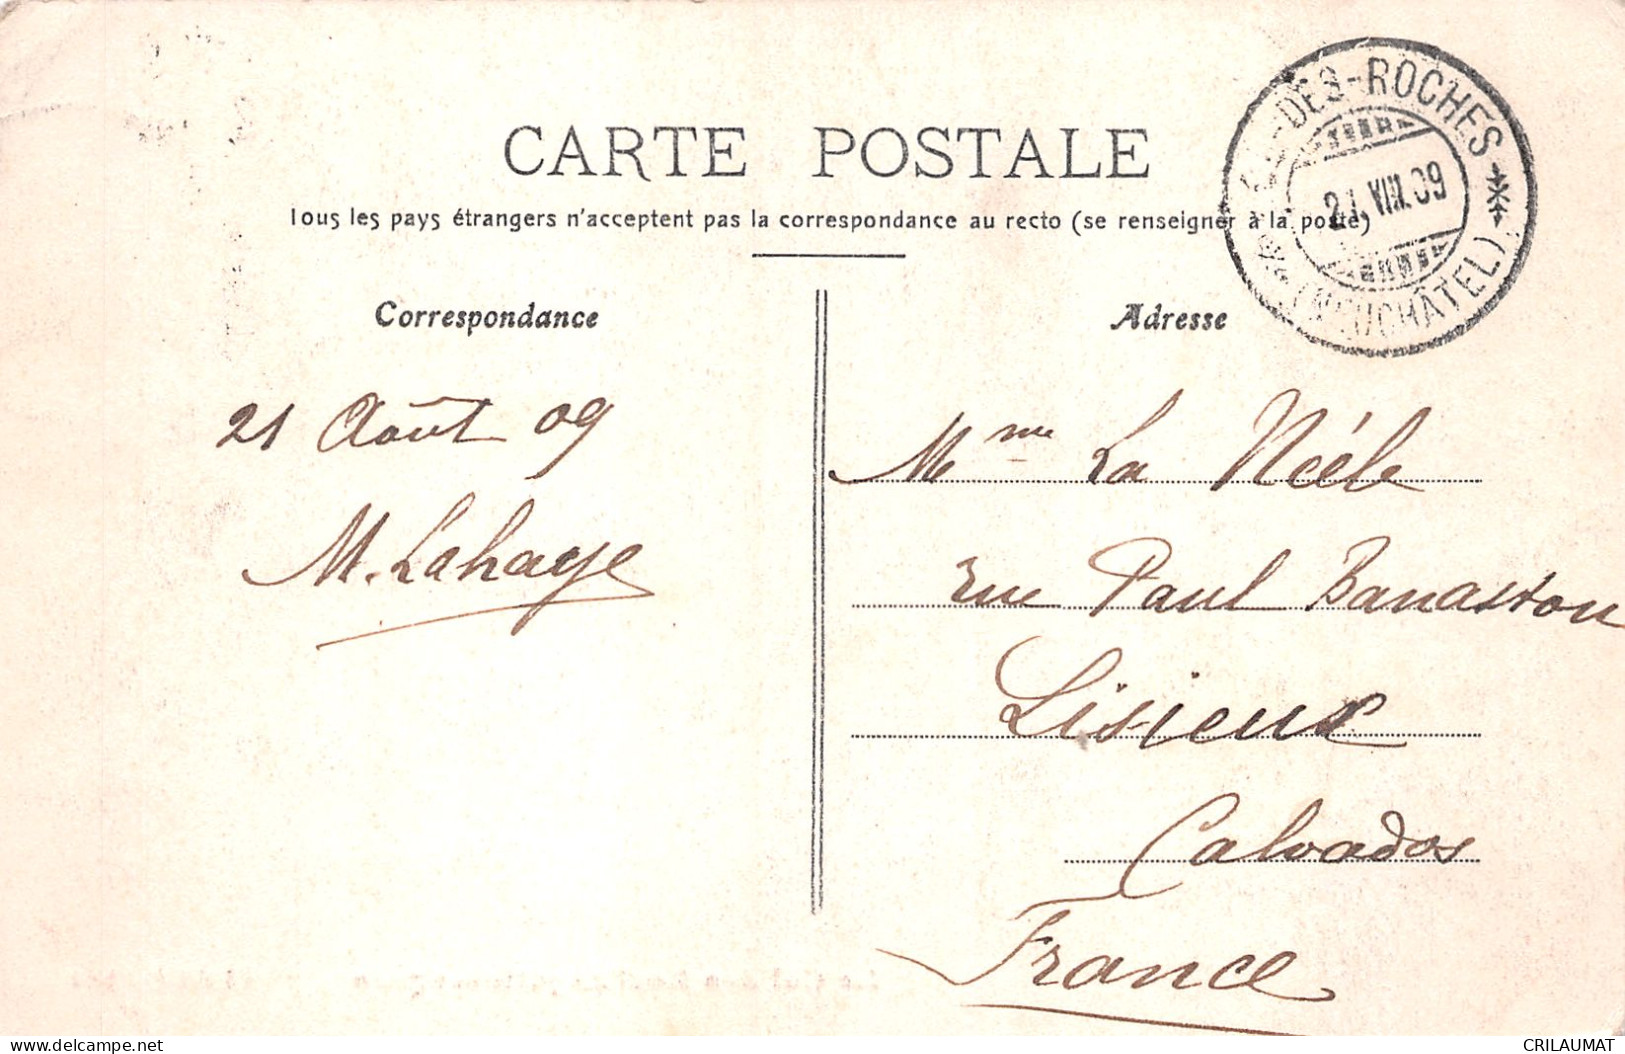 CARTE POSTALE
Tous les pays étrangers n'acceptent pas la correspondance au recto (se renseigner à la poste)
-DES-ROCHES
21.VIII.09
(NEUCHÂTEL)
Correspondance
21 Août 09
M. Lahaye
Adresse
Mme La Néele
rue Paul Banaston
Lisieux
Calvados
France
CRILAUMAT